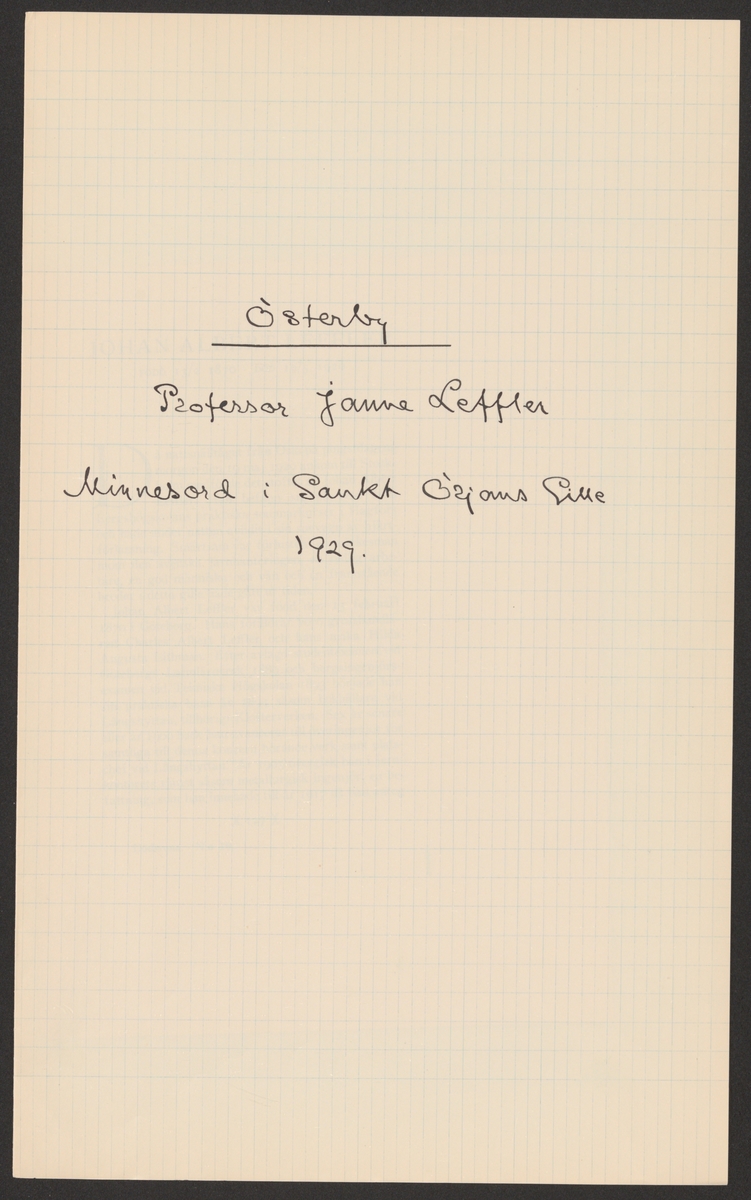 Österby
Professor Janne Leffler
Minnesord i Sankt Örjans Gille
1929.